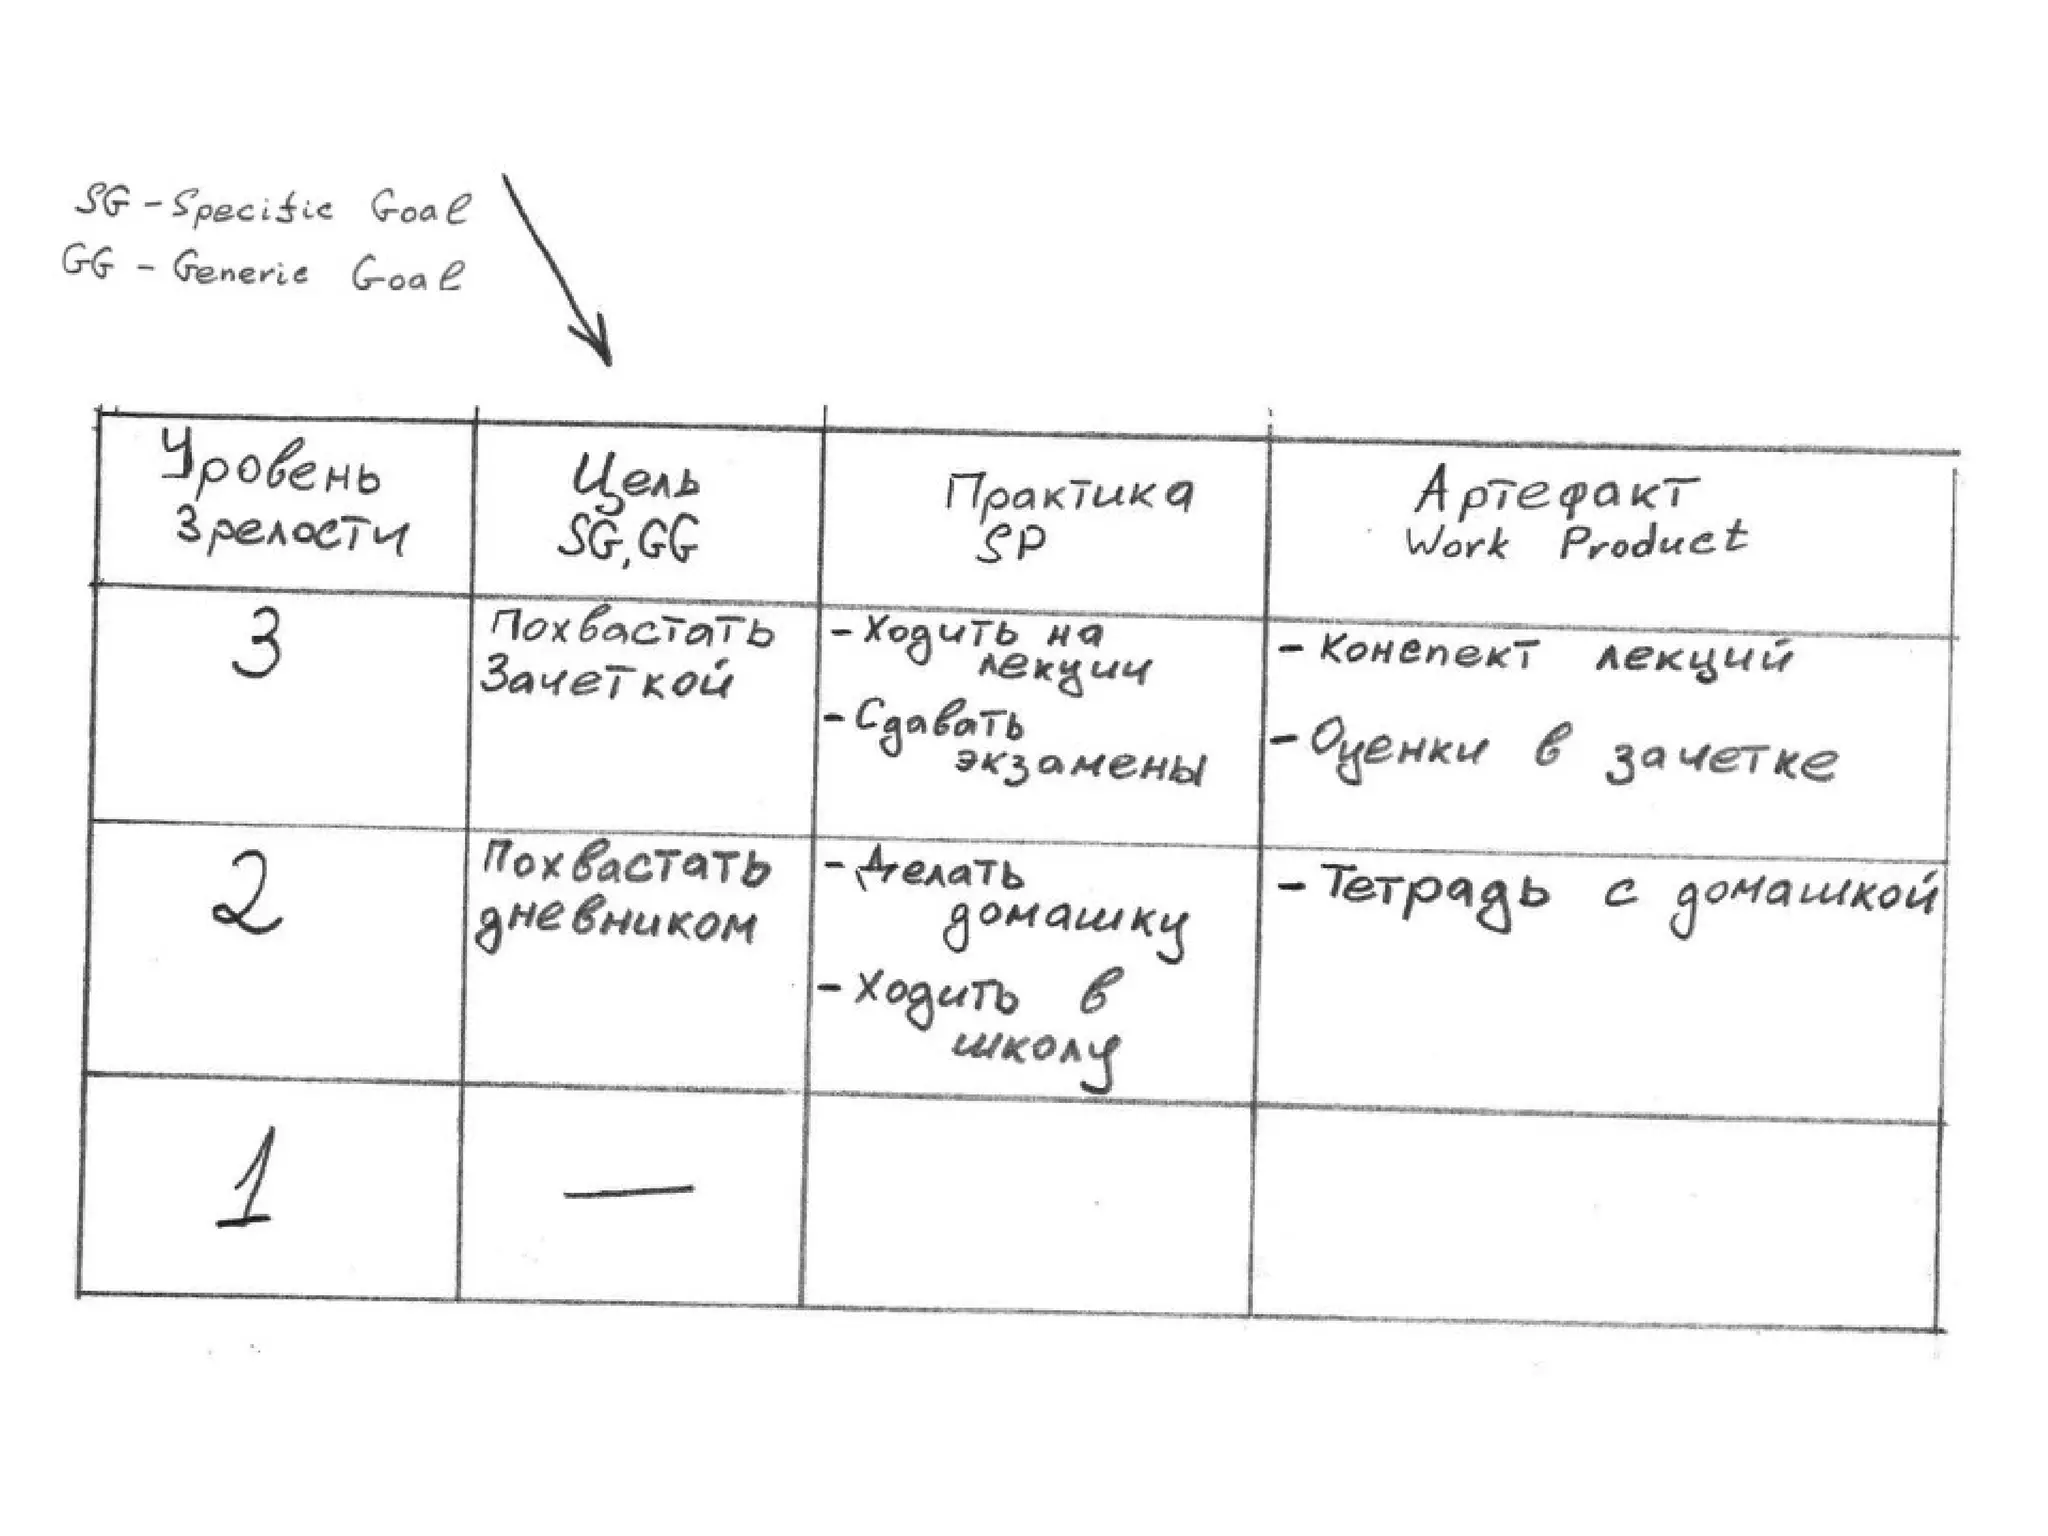 SG - Specific Goal
GG - Generic Goal
Уровень
Зрелости
Цель
SG, GG
Практика
SP
Артефакт
Work Product
3
Похвастать
Зачеткой
- Ходить на
лекции
- Сдавать
экзамены
- Конспект лекций
- Оценки в зачетке
2
Похвастать
дневником
- Делать
домашку
- Ходить в
школу
- Тетрадь с домашкой
1
—